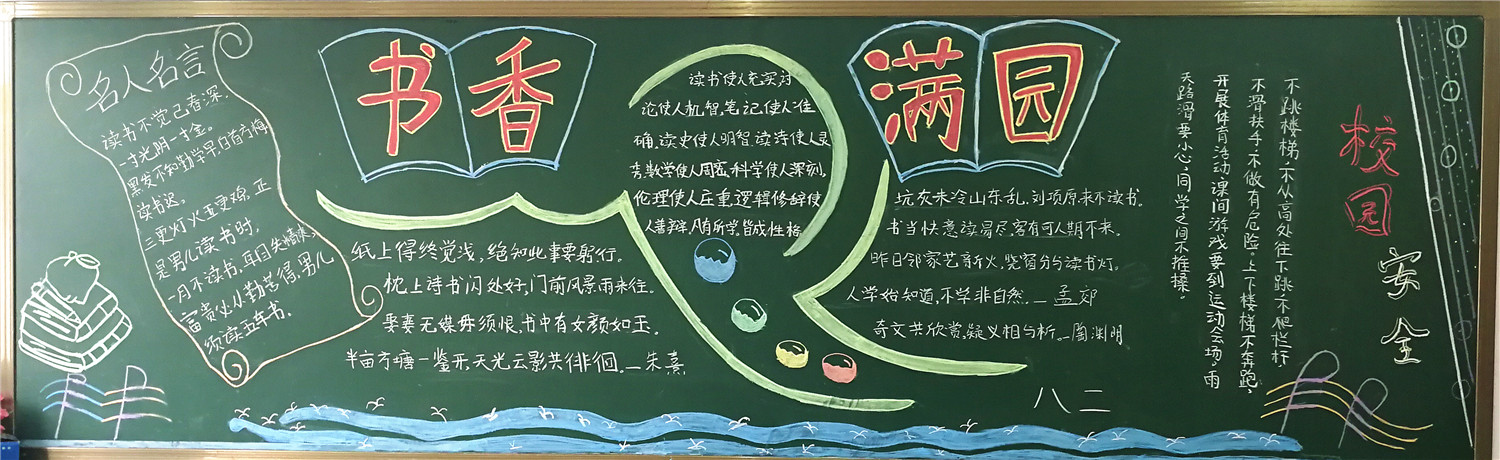 书香
满园
名人名言
读书不觉已春深,
一寸光阴一寸金。
黑发不知勤学早,白首方悔
读书迟。
三更灯火五更鸡,正
是男儿读书时,
一月不读书,耳目失精爽。
富贵必从勤苦得,男儿
须读五车书。
纸上得终觉浅,绝知此事要躬行。
枕上诗书闲处好,门前风景雨来佳。
娶妻无媒毋须恨,书中有女颜如玉。
半亩方塘一鉴开,天光云影共徘徊。—朱熹
读书使人充实,讨
论使人机智,笔记使人准
确,读史使人明智,读诗使人灵
秀,数学使人周密,科学使人深刻,
伦理使人庄重,逻辑修辞使
人善辩,凡有所学,皆成性格
坑灰未冷山东乱,刘项原来不读书。
书当快意读易尽,客有可人期不来。
昨日邻家乞新火,晓窗分与读书灯。
人学始知道,不学非自然。—孟郊
奇文共欣赏,疑义相与析。—陶渊明
八二
校园
安全
不跳楼梯,不从高处往下跳,不爬栏杆,
不滑扶手,不做有危险。上下楼梯不奔跑,
开展体育活动,课间游戏要到运动会场。雨
天路滑要小心,同学之间不推搡。